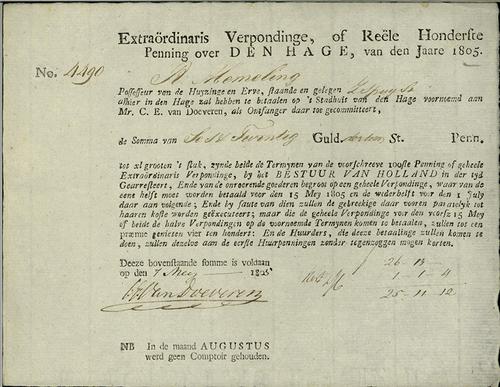 Extraördinaris Verpondinge, of Reële Honderste
Penning over DEN HAGE, van den Jaare 1805.
No. 4490
Hemeling
Possesseur van de Huyzinge en Erve, staande en gelegen
alhier in den Hage zal hebben te betaalen op 't Stadhuis van den Hage voornoemd aan
Mr. C. E. van Doeveren, als Ontfanger daar toe gecommitteert,
de Somma van Twintig Guld. St. Penn.
tot xl grooten 't stuk, zynde beide de Termynen van de voorschreve 100ste Penning of geheele
Extraördinaris Verpondinge, by het BESTUUR VAN HOLLAND in der tyd
Gearresteert, Ende van de onroerende goederen begroot op een geheele Verpondinge, waar van de
eene helft moet worden betaald voor den 15 Mey 1805 en de wederhelft voor den 1 July
daar aan volgende; Ende by faute van dien zullen de gebreekige daar vooren paratelyk tot
haaren koste worden geëxecuteert; maar die de geheele Verpondinge voor den voorsz 15 Mey
of beide de halve Verpondingen op de voornoemde Termynen komen te betaalen, zullen tot een
præmie genieten vier ten hondert: En de Huurders, die deeze betaalinge zullen komen te
doen, zullen dezelve aan de eerste Huurpenningen zonder tegenzeggen mogen korten.
Deeze bovenstaande somme is voldaan
op den 7 Mey 1805
CE Van Doeveren
26 - 13 -
1 - 1 - 4
25 - 11 - 12
NB In de maand AUGUSTUS
werd geen Comptoir gehouden.